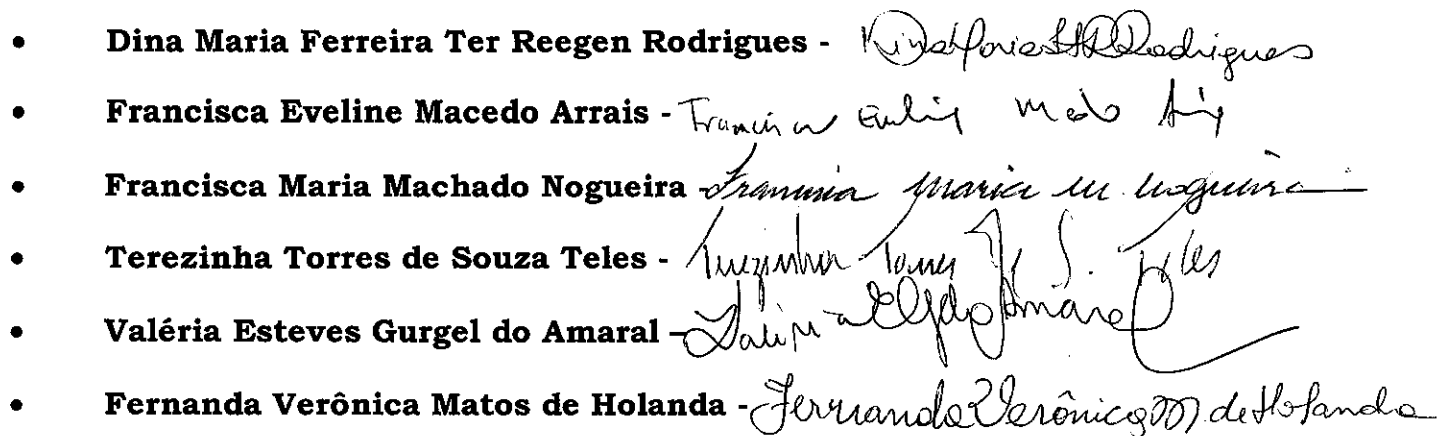 • Dina Maria Ferreira Ter Reegen Rodrigues - Dina Maria FTR Rodrigues
• Francisca Eveline Macedo Arrais - Francisca
• Francisca Maria Machado Nogueira - Francisca Maria M. Nogueira
• Terezinha Torres de Souza Teles - Terezinha Torres de S. Teles
• Valéria Esteves Gurgel do Amaral – Valéria E G do Amaral
• Fernanda Verônica Matos de Holanda - Fernanda Verônica M de Holanda